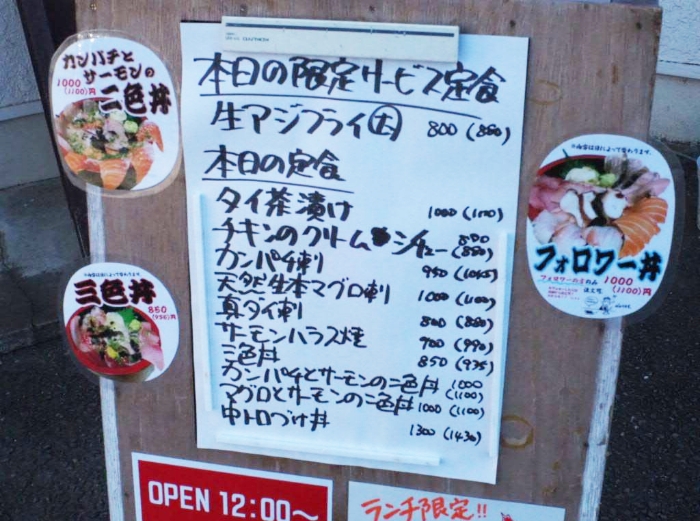 本日の限定サービス定食
生アジフライ大 800(880)
本日の定食
タイ茶漬け 1000(1100)
チキンのクリームシチュー 800(880)
カンパチ刺 950(1045)
天然生本マグロ刺 1000(1100)
真ダイ刺 800(880)
サーモンハラス焼 900(990)
三色丼 850(935)
カンパチとサーモンの二色丼 1000(1100)
マグロとサーモンの二色丼 1000(1100)
中トロづけ丼 1300(1430)
カンパチと
サーモンの
二色丼
1000
(1100)円
三色丼
850
(935)円
フォロワー丼
フォロワーの方のみ
注文可
1000
(1100)円
OPEN 12:00〜
ランチ限定!!